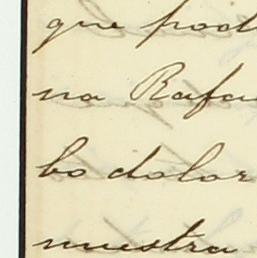 que pod
na Rafa
bo dolor
muestra